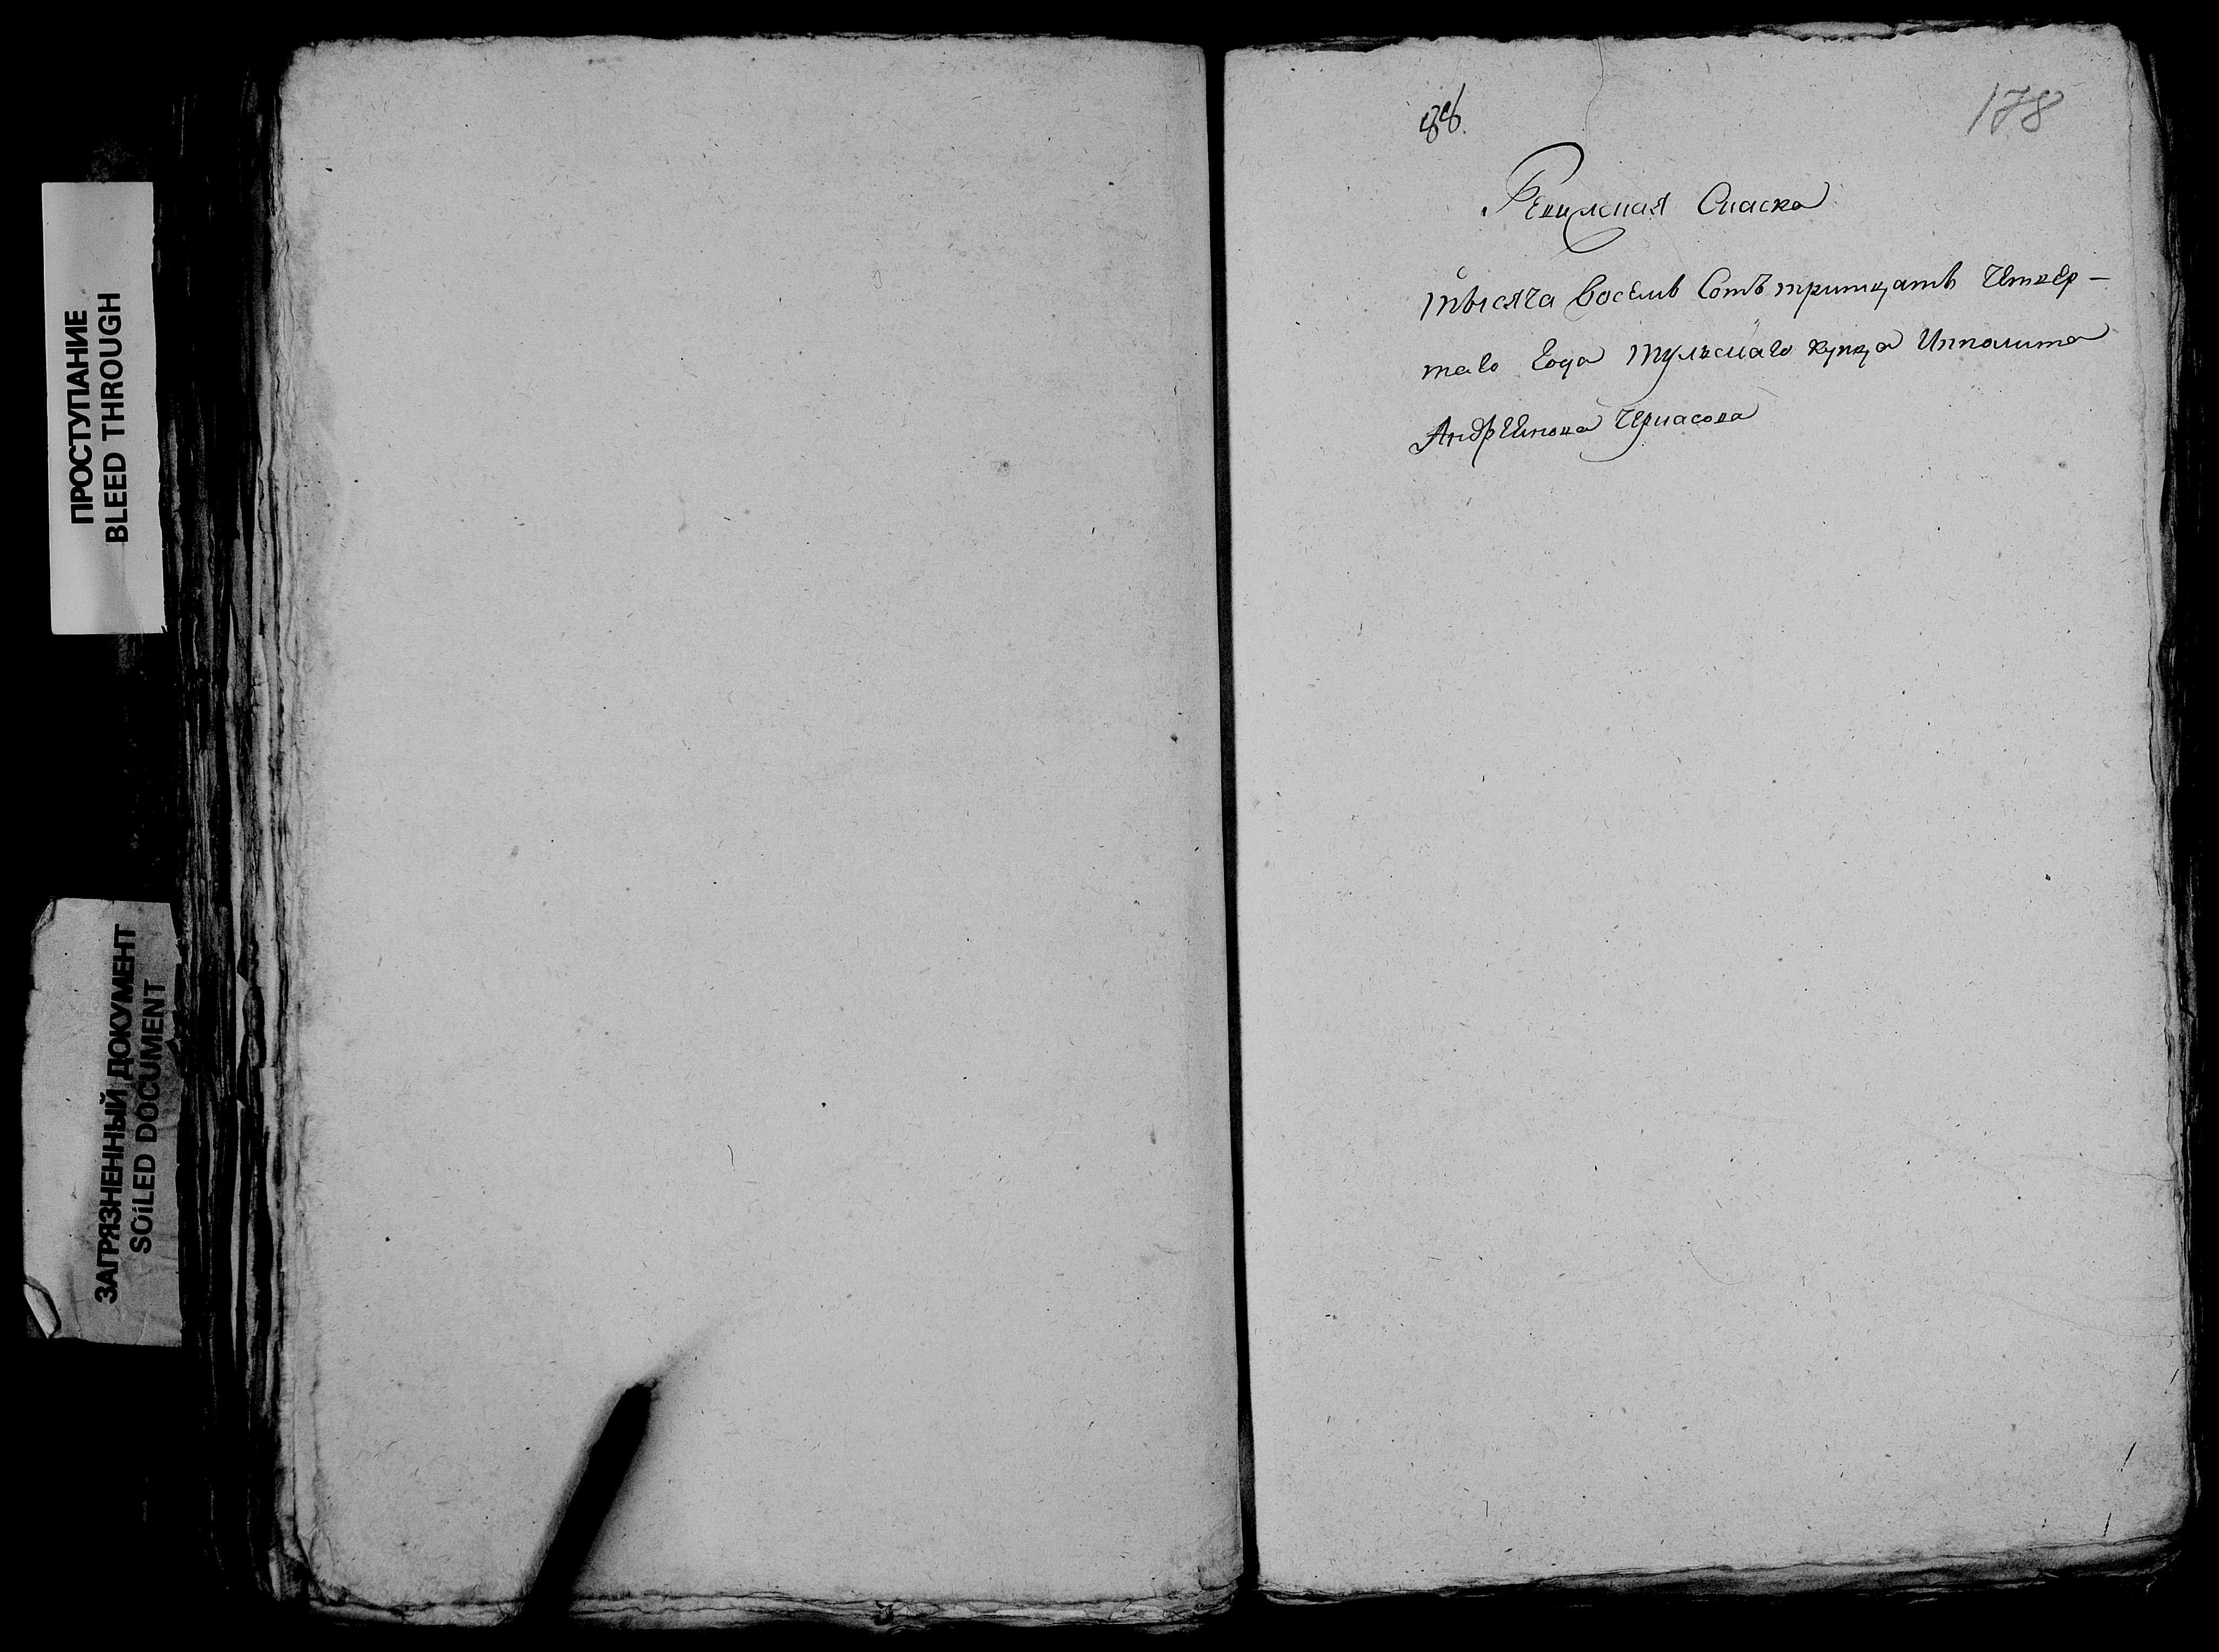 ПРОСТУПАНИЕ
BLEED THROUGH
ЗАГРЯЗНЕННЫЙ ДОКУМЕНТ
SOiLED DOCUMENT
88.
178
Ревижская Скаска
тысяча восемь Сотъ тритцать Четвер–
таго года тульскаго купца Ипполита
Андреинова Черкасова